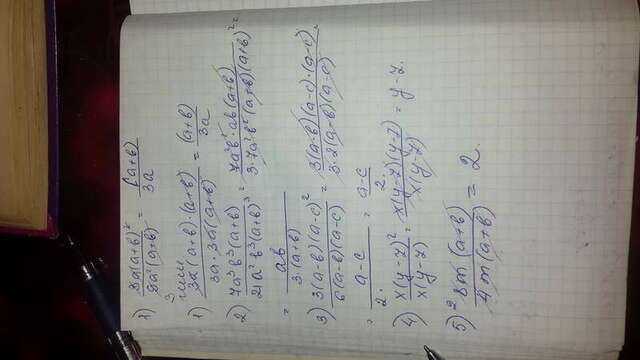 1) 3a(a+b)² / 9a²(a+b) = (a+b) / 3a
1) 3a(a+b)·(a+b) / 3a·3a(a+b) = (a+b) / 3a
2) 7a³b³(a+b) / 21a²b²(a+b)³ = 7a²b²·ab(a+b) / 3·7a²b²(a+b)(a+b)² =
= ab / 3·(a+b)
3) 3(a-b)(a-c)² / 6(a-b)(a-c) = 3(a-b)(a-c)·(a-c) / 3·2(a-b)(a-c) =
= a-c / 2
4) x(y-7)² / x(y-7) = x(y-7)(y-7) / x(y-7) = y-7.
5) 8m(a+b) / 4m(a+b) = 2.